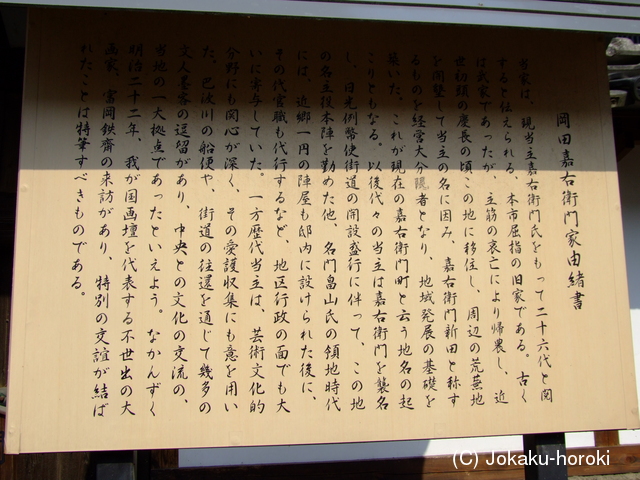 岡田嘉右衛門家由緒書
当家は、現当主嘉右衛門氏をもって二十六代と関
すると伝えられる、本市屈指の旧家である。古く
は武家であったが、主筋の哀亡により帰農し、近
世初頭の慶長の頃この地に移住し、周辺の荒蕪地
を開墾して当主の名に因み、嘉右衛門新田と称す
るものを経営大分限者となり、地域発展の基礎を
築いた。これが現在の嘉右衛門町と云う地名の起
こりともなる。以後代々の当主は嘉右衛門を襲名
し、日光例幣使街道の開設盛行に伴って、この地
の名主役本陣を勤めた他、名門畠山氏の領地時代
には、近郷一円の陣屋も邸内に設けられた後に、
その代官職も代行するなど、地区行政の面でも大
いに寄与していた。一方歴代当主は、芸術文化的
分野にも関心が深く、その愛護収集にも意を用い
た。巴波川の船便や、街道の往還を通じて幾多の
文人墨客の逗留があり、中央との文化の交流の、
当地の一大拠点であったといえよう。なかんずく
明治二十二年、我が国画壇を代表する不世出の大
画家、富岡鉄斎の来訪があり、特別の交誼が結ば
れたことは特筆すべきものである。
(C) Jokaku-horoki